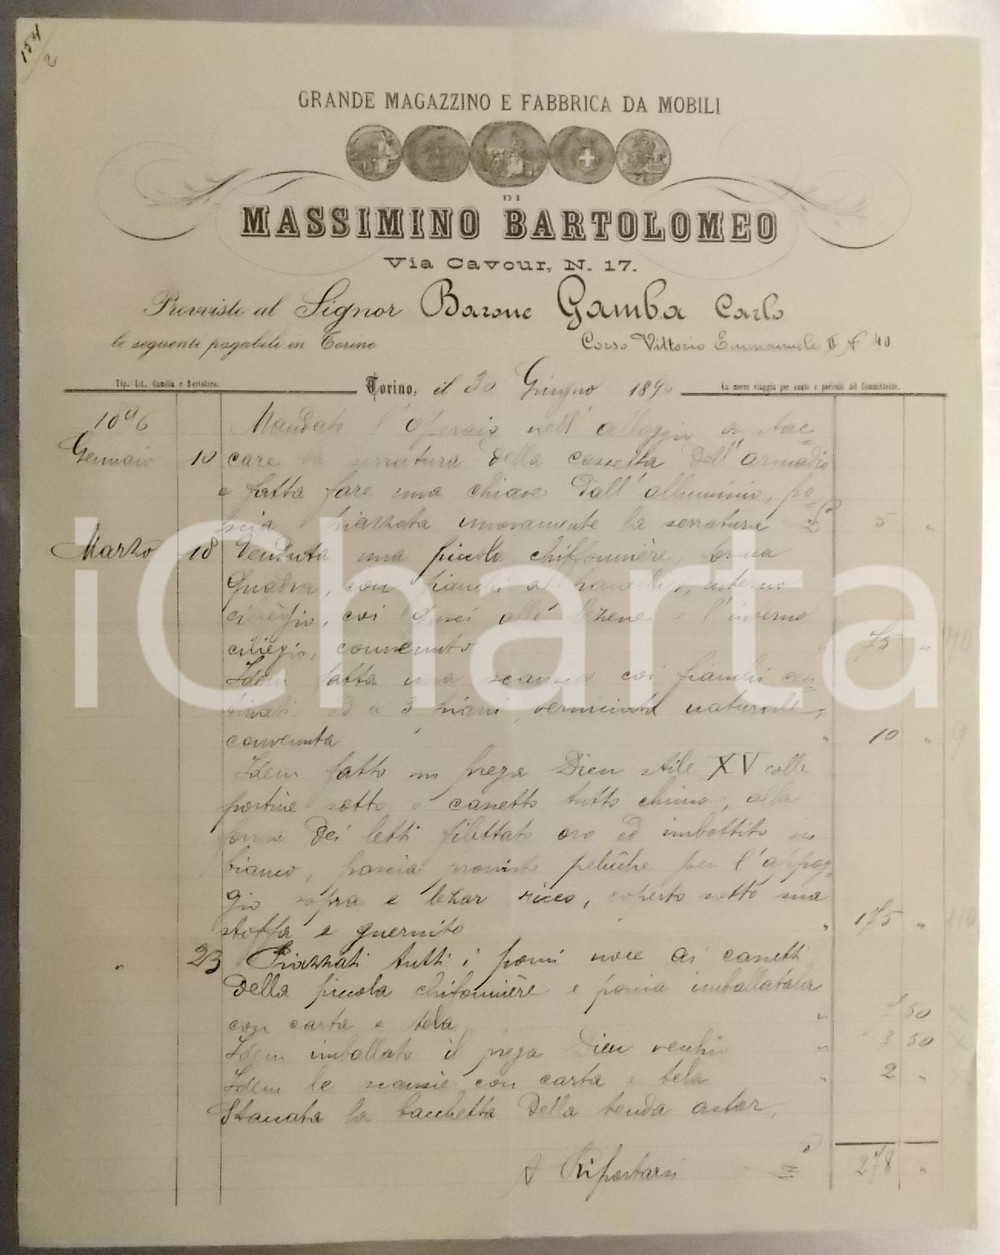 154/2
GRANDE MAGAZZINO E FABBRICA DA MOBILI
DI
MASSIMINO BARTOLOMEO
Via Cavour, N. 17.
Provviste al Signor Barone Gamba Carlo
le seguente pagabile in Torino Corso Vittorio Emmanuele II N° 40
Tip. Lit. Camilla e Bertolero. Torino, il 30 Giugno 1896 La merce viaggia per conto e pericolo del Committente.
1896 Mandato l'Operaio nell'alloggio a stac-
Gennaio 10 care la serratura della cassetta dell'armadio
e fatta fare una chiave dall'alluminio, po-
scia piazzata nuovamente la serratura £ 5 "
Marzo 18 Venduta una piccola chiffonnière, forma
quadra, con fianchi interno
ciliegio, coi alle lezene e l'interno
ciliegio, convenuto " 75 "
Idem fatta una scansia coi fianchi cen-
tinati a 3 piani, verniciata naturale,
convenuta " 10 " 9
Idem fatto un prega Dieu stile XV colle
portine sotto e cassetto tutto chiuso, alla
forma dei letti filettato oro ed imbottito in
bianco, poscia provvisto peluche per l'appog-
gio sopra e lezar ricco, coperto sotto sua
stoffa e guernito " 175 "
" 23 Piazzati tutti i pomi noce ai cassetti
della piccola chifonnière e poscia imballatala
con carta e tela " 50 x
Idem imballato il prega Dieu vecchio " 3 50 x
Idem le scansie con carta e tela " 2 " x
Staccata la bacchetta della tenda
A Riportarsi £ 278 "
iCharta